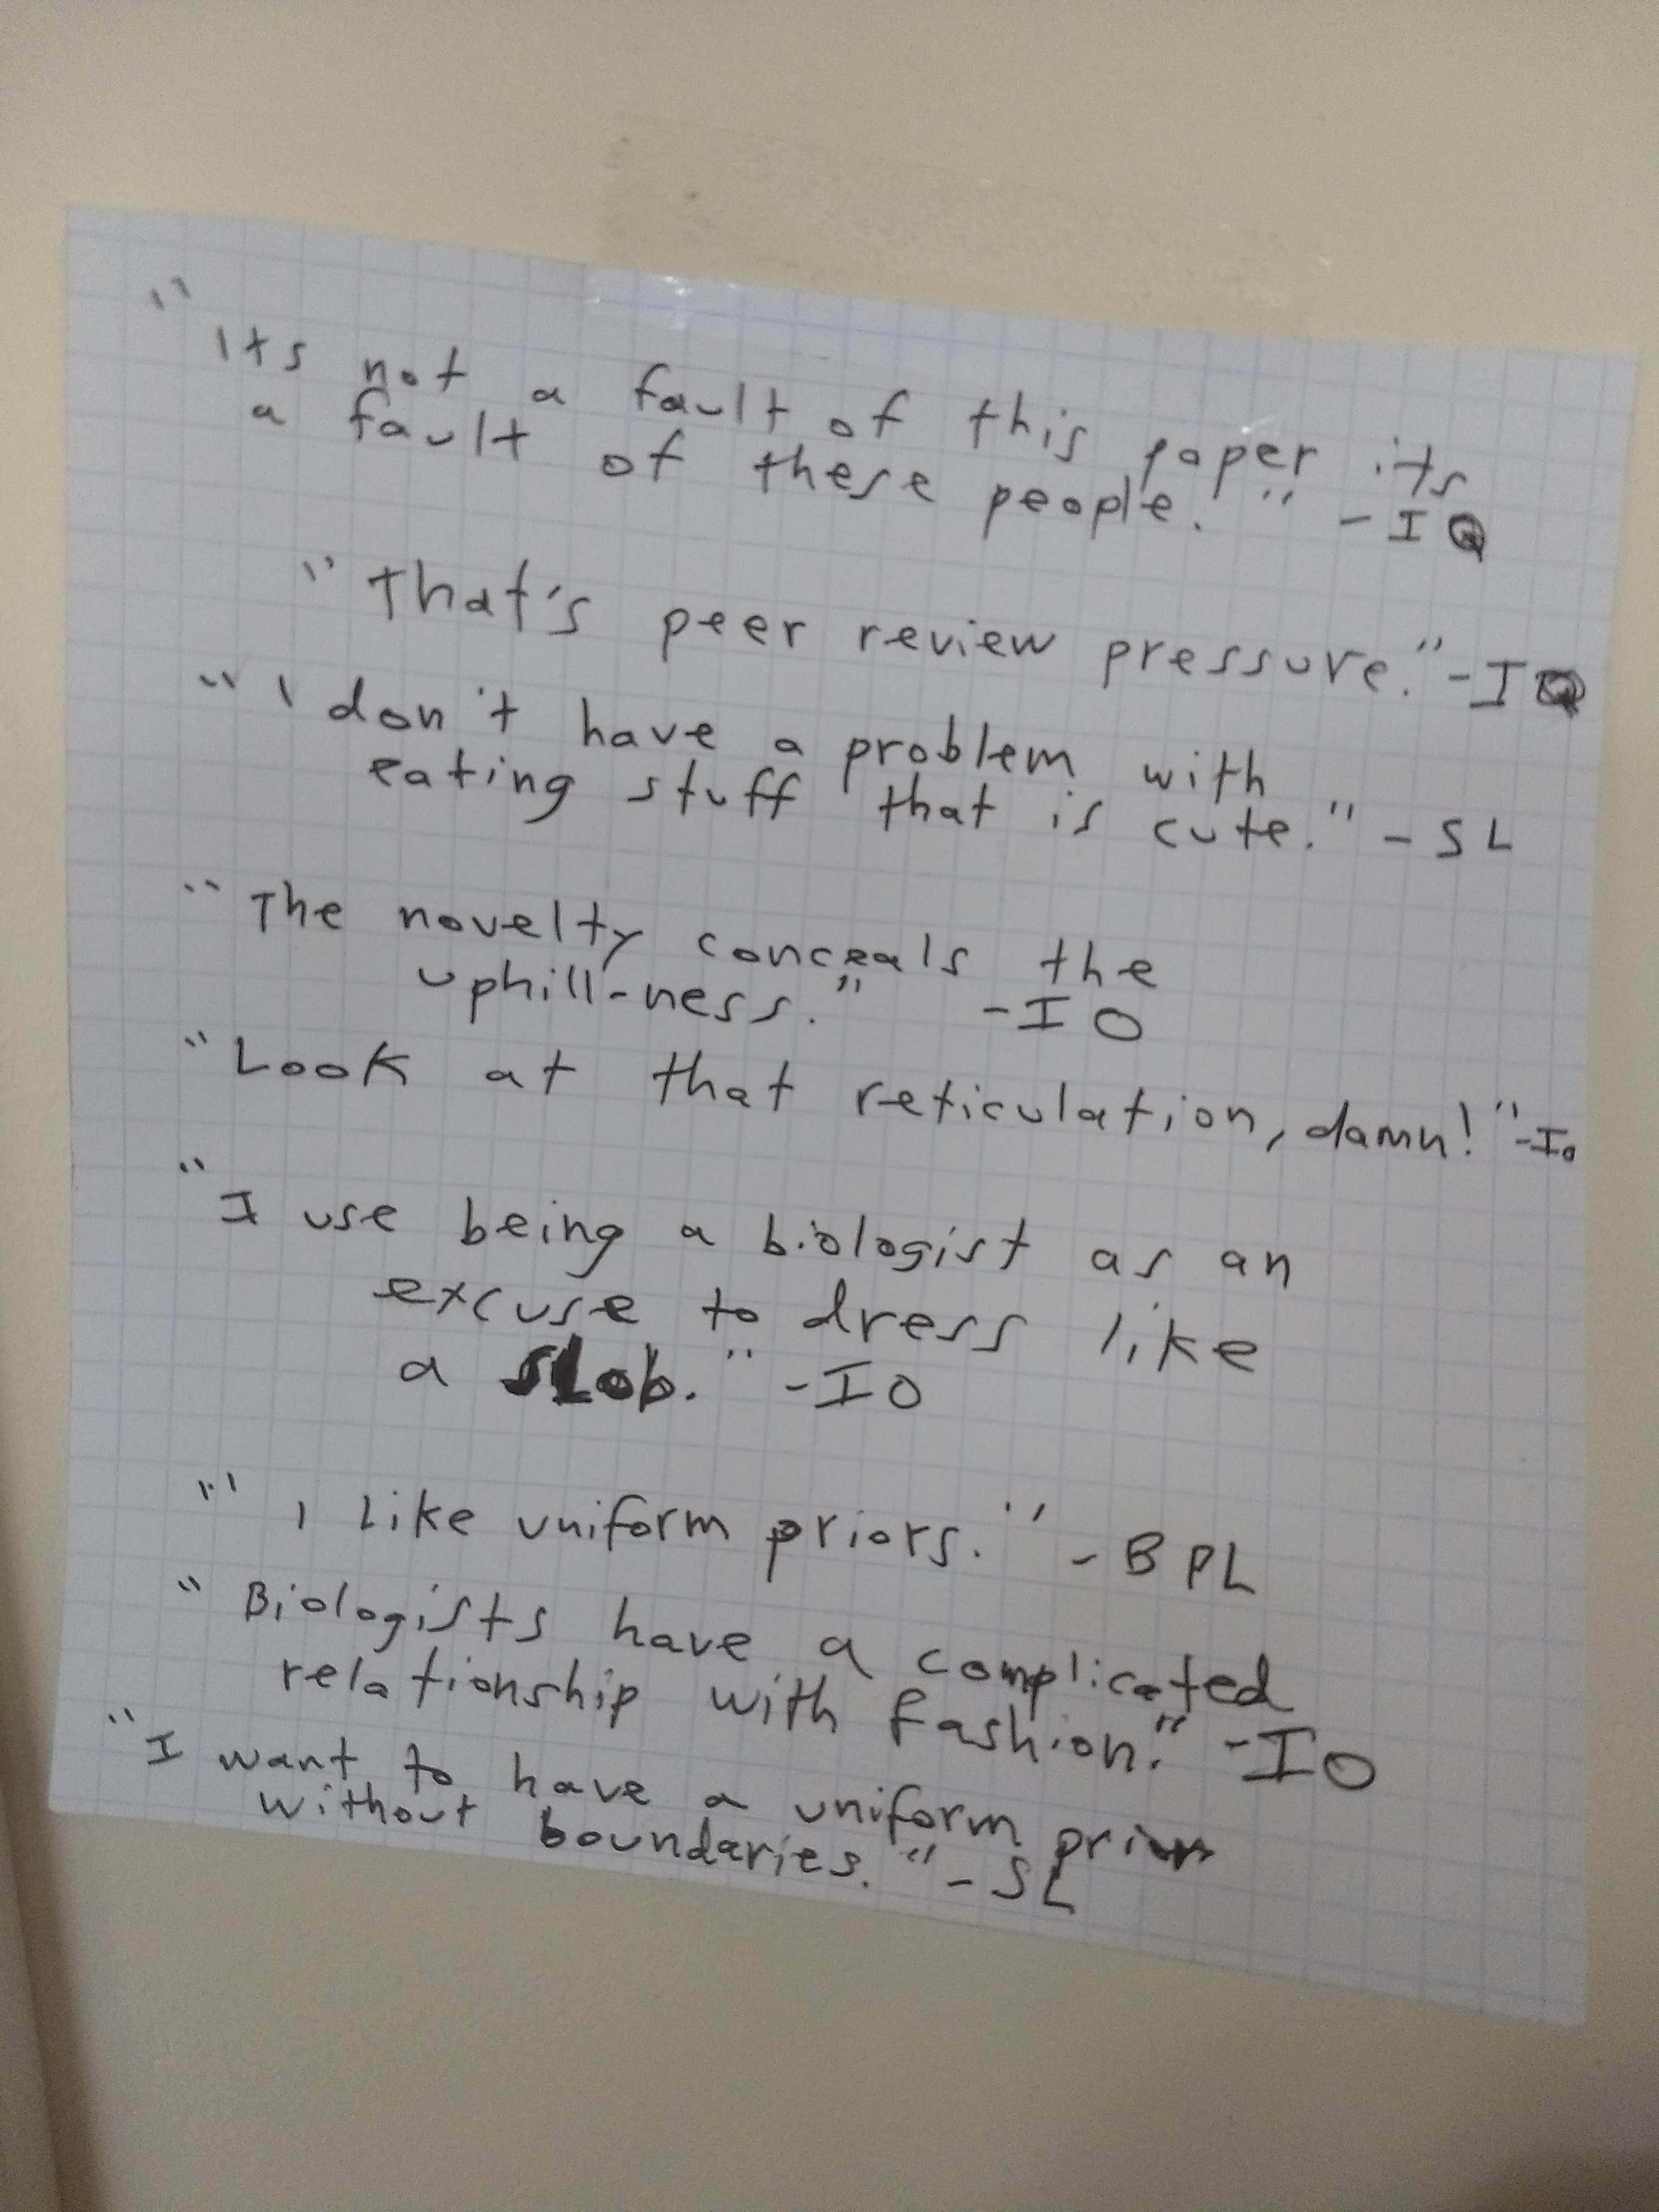 "Its not a fault of this paper its
a fault of these people." - IQ
"That's peer review pressure." - IQ
"I don't have a problem with
eating stuff that is cute." - SL
"The novelty conceals the
uphill-ness." - IO
"Look at that reticulation, damn!" - IO
"I use being a biologist as an
excuse to dress like
a slob." - IO
"I like uniform priors." - BPL
"Biologists have a complicated
relationship with fashion." - IO
"I want to have a uniform prior
without boundaries." - SL